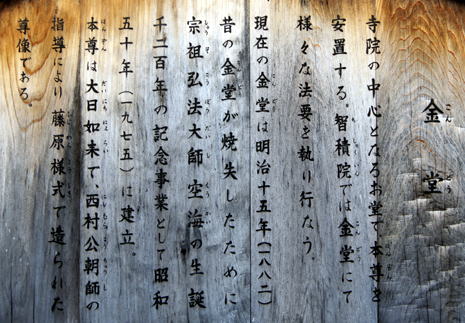 金堂
寺院の中心となるお堂で本尊を
安置する。智積院では金堂にて
様々な法要を執り行なう。
現在の金堂は明治十五年(一八八二)
昔の金堂が焼失したために
宗祖弘法大師空海の生誕
千二百年の記念事業として昭和
五十年(一九七五)に建立。
本尊は大日如来で、西村公朝師の
指導により藤原様式で造られた
尊像である。